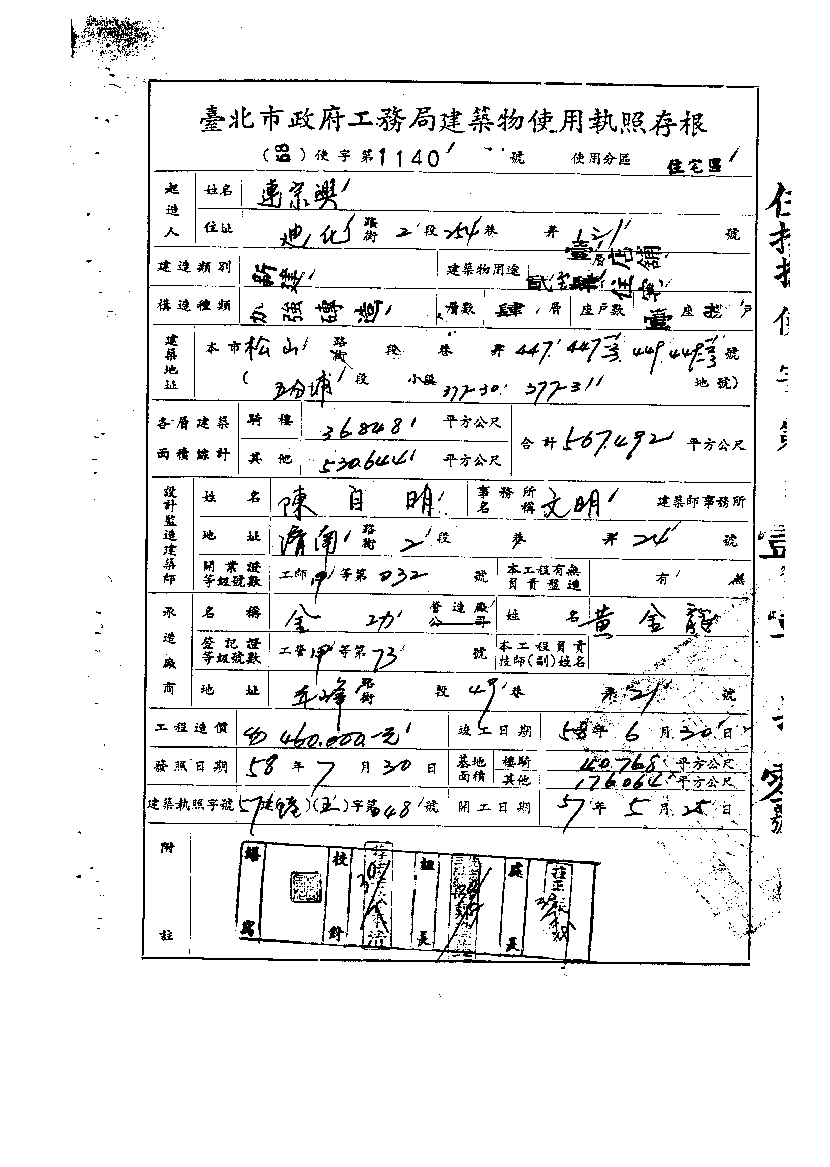 臺北市政府工務局建築物使用執照存根
(58) 使字第1140號 使用分區 住宅區
起造人 姓名 連宗興
住址 迪化路街2段254巷 弄 121號
建造類別 新建 建築物用途 壹層店舖
構造種類 加強磚造 層數 肆層 座戶數 壹座 戶
建築地址 本市松山路街 段 巷 弄 447. 447 449. 449 號
(五分埔段 小段 377-30. 377-31 地號)
各層建築面積總計 騎樓 36.848 平方公尺 合計567.492平方公尺
其他 530.644 平方公尺
設計監造建築師 姓名 陳自明 事務所名稱 文明 建築師事務所
地址 濟南路街2段 巷 弄 24號
開業證等級號數 工師甲等第032號 本工程有無負責監造 有 無
承造廠商 名稱 金功 營造廠公司 姓名 黃金龍
登記證等級號數 工營甲等第73號 本工程負責技師(副)姓名
地址 路街 段 49巷 弄 21號
工程造價 460,000元 竣工日期 58年6月30日
發照日期 58年7月30日 基地面積 樓騎 40.768平方公尺
其他 176.064平方公尺
建築執照字號 57建()()字第048號 開工日期 57年5月25日
附註
繕寫 校對 組長 處長